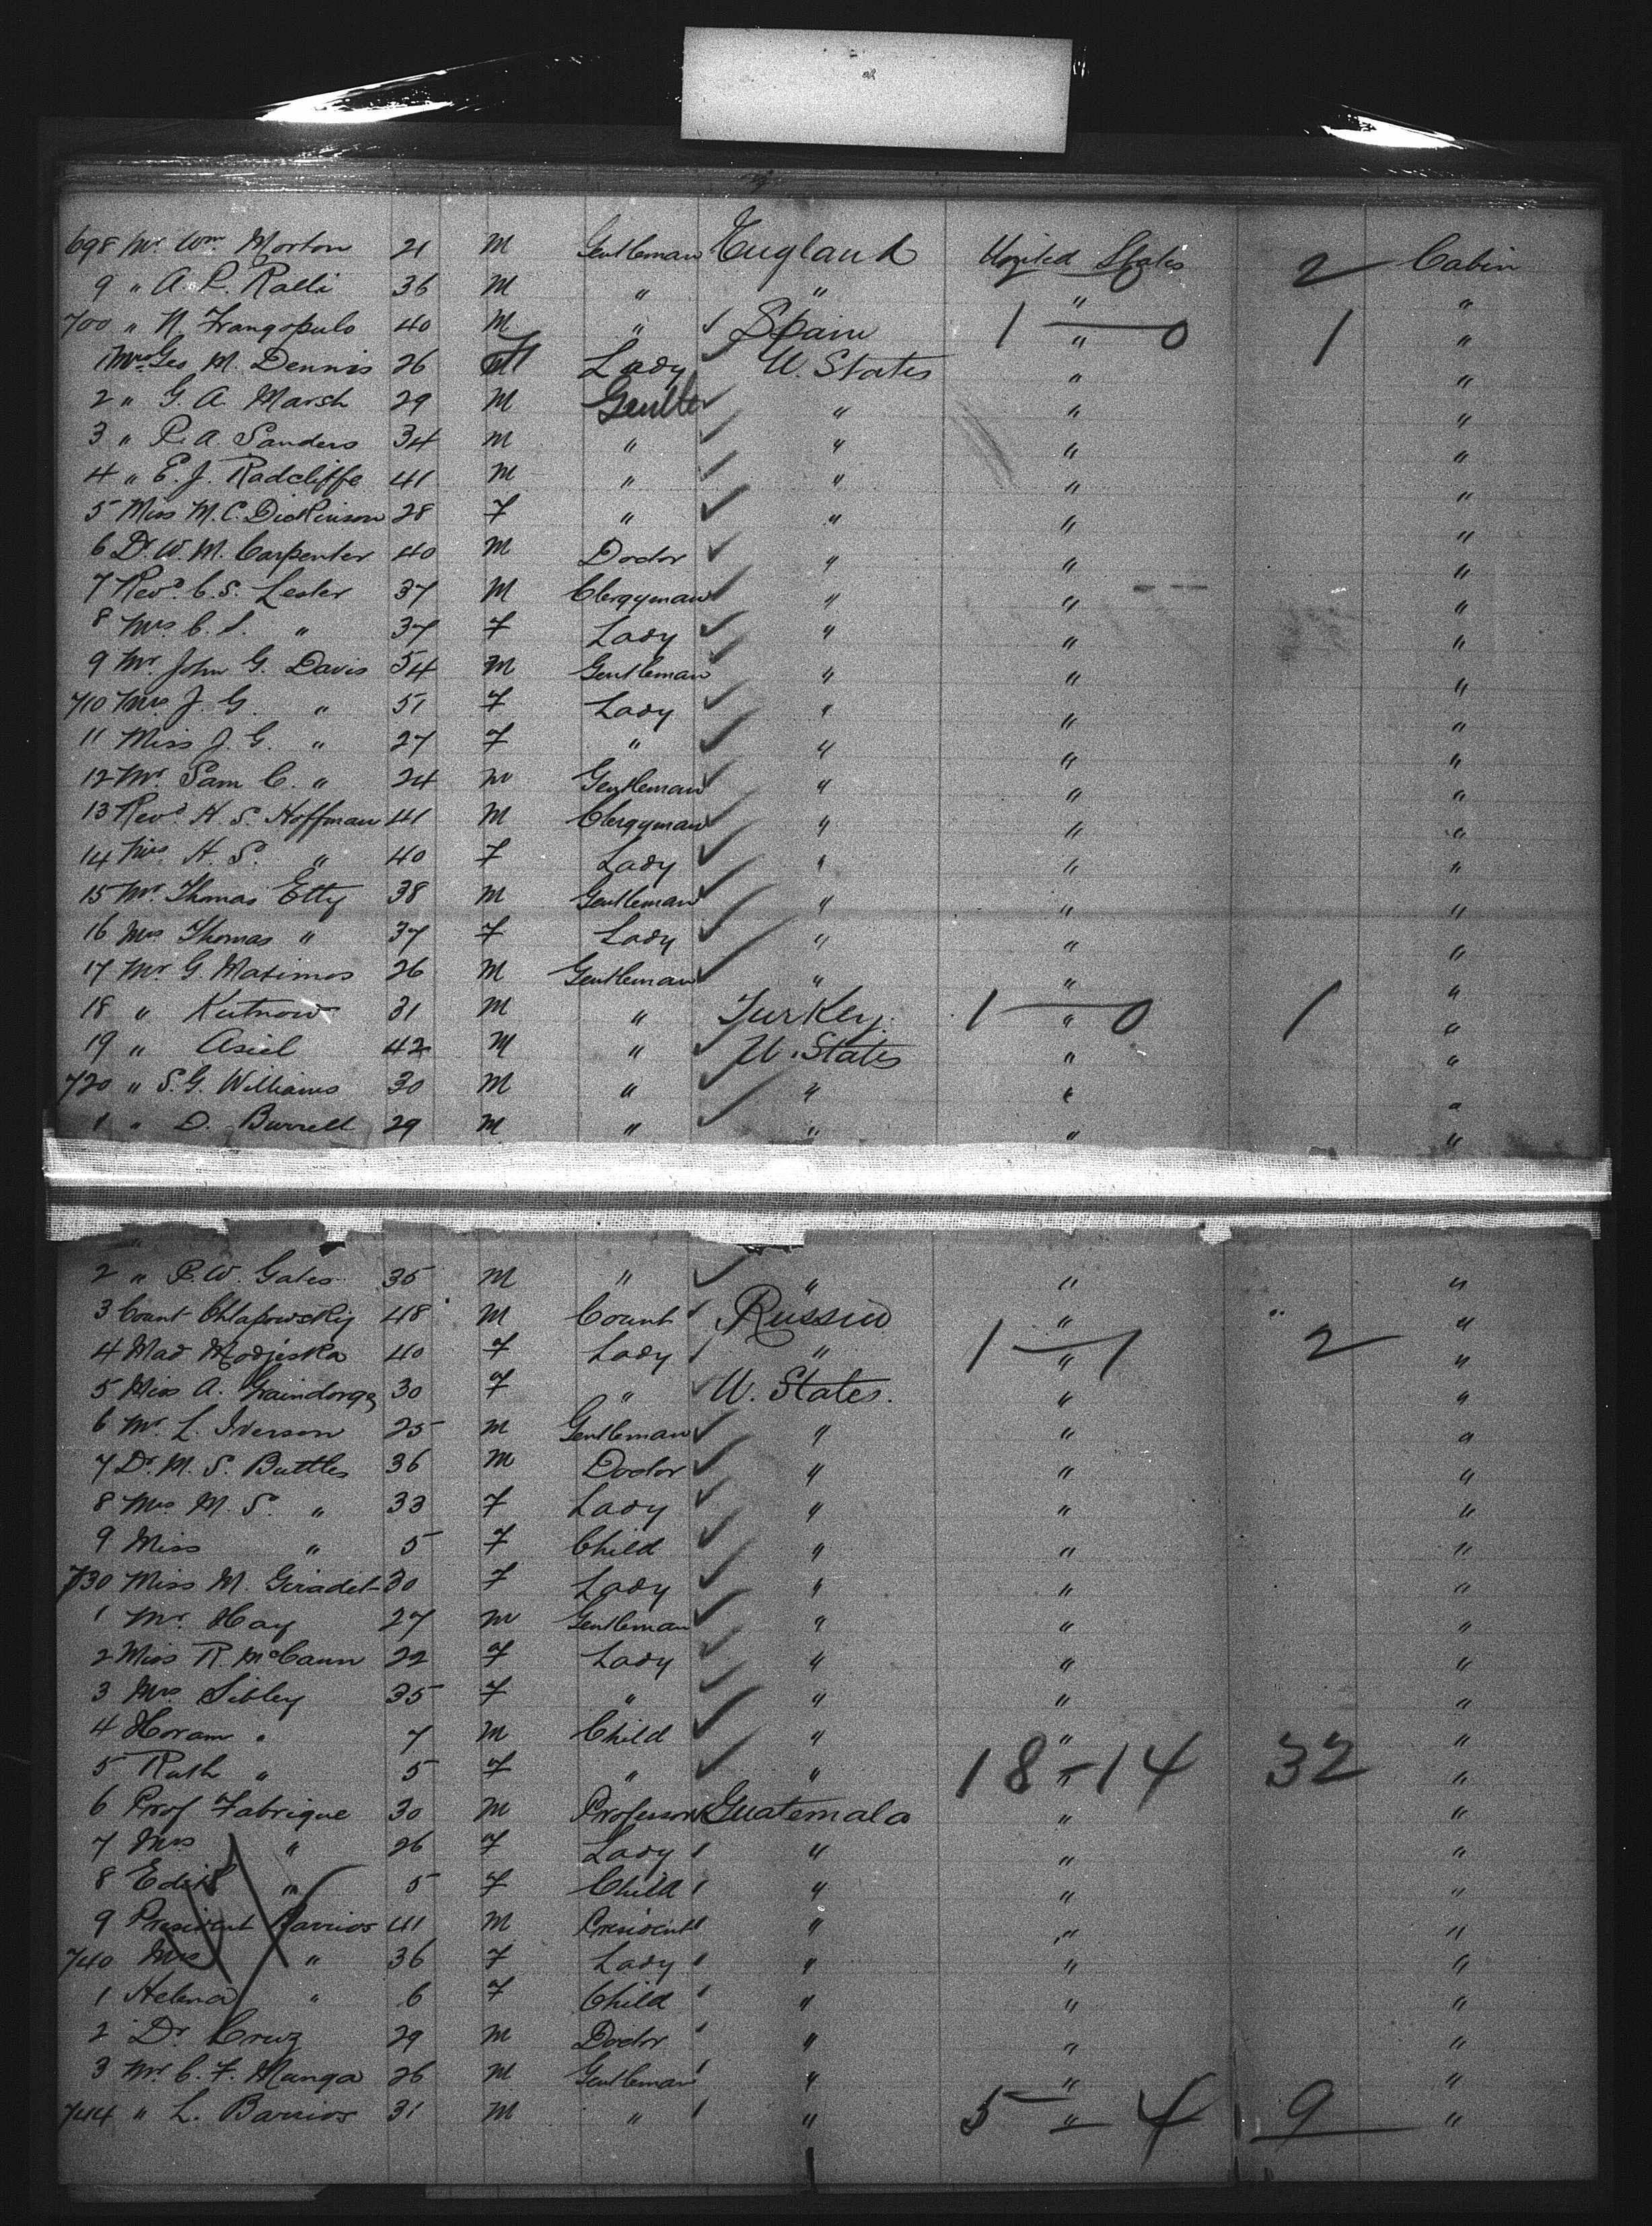 698 Mr. Wm Morton 21 M Gentleman England United States 2 Cabin
9 " A. P. Ralli 36 M " " " "
700 " N. Frangopulo 40 M " Spain 1 — 0 " 1 "
1 Mrs Geo. M. Dennis 26 F Lady U. States " "
2 " G. A. Marsh 29 M Gentle " " "
3 " P. A. Sanders 34 M " " " "
4 " E. J. Radcliffe 41 M " " " "
5 Miss M. C. Dickinson 28 F " " " "
6 Dr. W. M. Carpenter 40 M Doctor " " "
7 Revd. C. S. Lester 37 M Clergyman " " "
8 Mrs C. S. " 37 F Lady " " "
9 Mr. John G. Davis 54 M Gentleman " " "
710 Mrs J. G. " 51 F Lady " " "
11 Miss J. G. " 27 F " " " "
12 Mr. Sam C. " 24 M Gentleman " " "
13 Revd H. S. Hoffman 41 M Clergyman " " "
14 Mrs H. S. " 40 F Lady " " "
15 Mr. Thomas Etty 38 M Gentleman " " "
16 Mrs Thomas " 37 F Lady " " "
17 Mr. G. Maximos 26 M Gentleman " " "
18 " Kutnow 31 M " Turkey. 1 — 0 " 1 "
19 " Asiel 42 M " U. States " "
720 " S. G. Williams 30 M " " " "
1 " D. Burrell 29 M " " " "
2 " P. W. Gates 35 M " " " "
3 Count Chlapowskij 48 M Count Russia " "
4 Mad Modjeska 40 F Lady " 1 — 1 " 2 "
5 Miss A. Graindorge 30 F " U. States. " "
6 Mr. L. Iverson 25 M Gentleman " " "
7 Dr. M. S. Buttles 36 M Doctor " " "
8 Mrs M. S. " 33 F Lady " " "
9 Miss " 5 F Child " " "
730 Miss M. Giradet 30 F Lady " " "
1 Mr. Hay 27 M Gentleman " " "
2 Miss R. McCann 22 F Lady " " "
3 Mrs Sibley 35 F " " " "
4 Horam " 7 M Child " " "
5 Ruth " 5 F " " 18 - 14 " 32 "
6 Prof Fabrique 30 M Professor Guatemala " "
7 Mrs " 26 F Lady " " "
8 Edith " 5 F Child " " "
9 President Barrios 41 M President " " "
740 Mrs " 36 F Lady " " "
1 Helena " 6 F Child " " "
2 Dr Cruz 29 M Doctor " " "
3 Mr. C. F. Munga 26 M Gentleman " " "
744 " L. Barrios 31 M " " 5 — 4 " 9 "